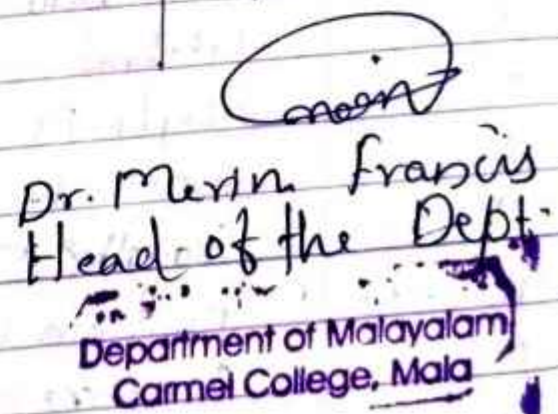 Dr. Merin Francis
Head of the Dept.
Department of Malayalam
Carmel College, Mala